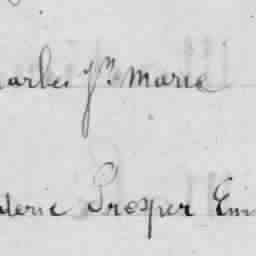 harles Jn Marie
deric Prosper Em